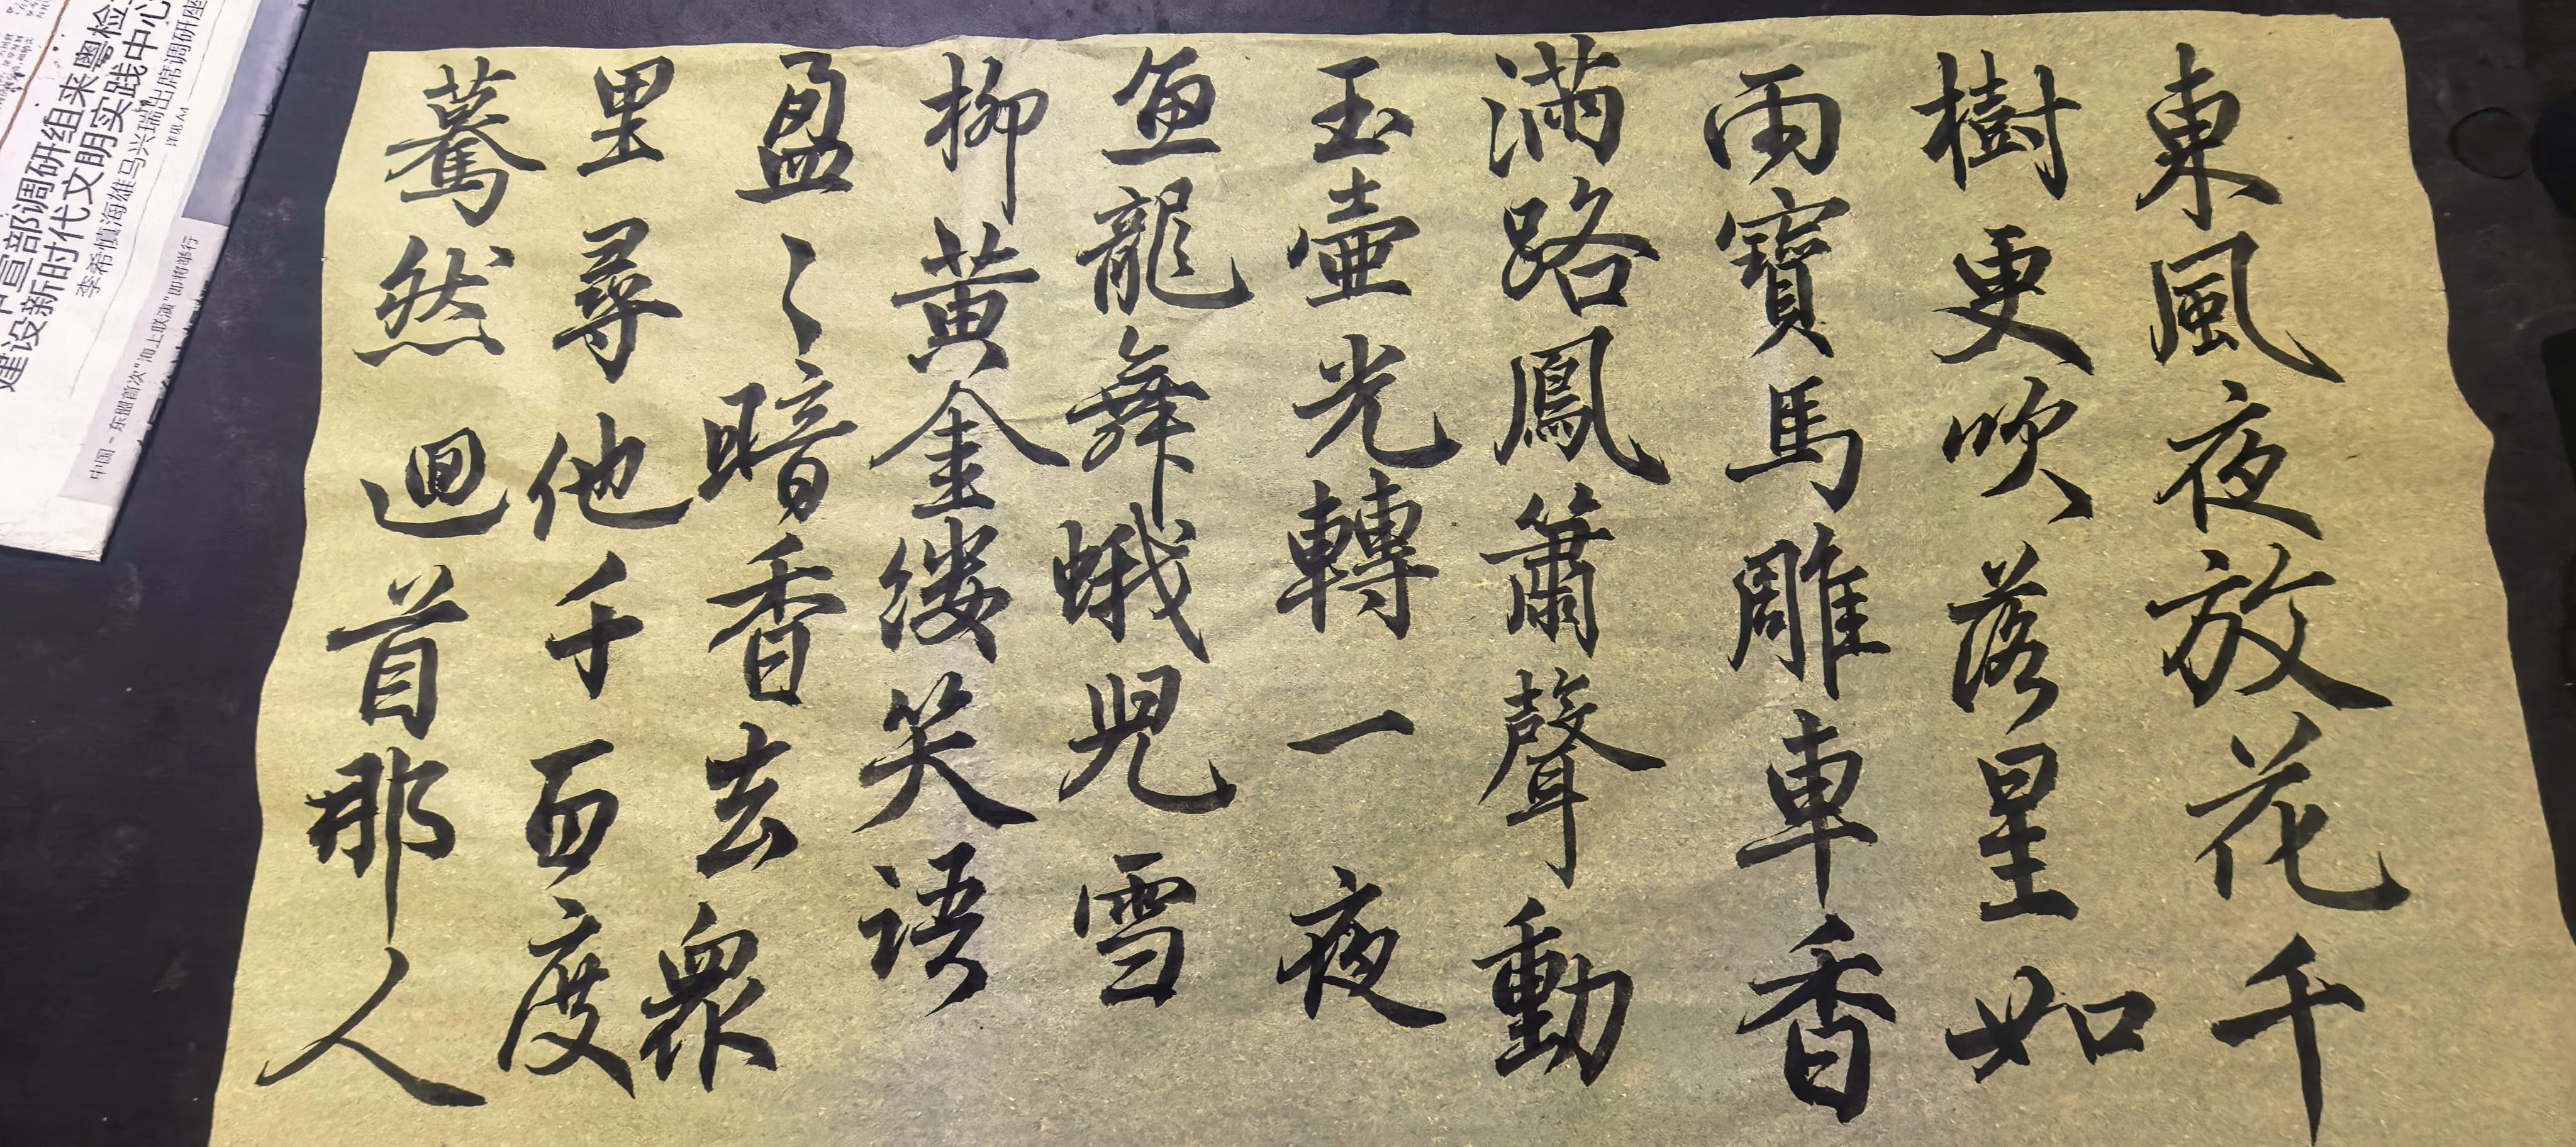 東風夜放花千
樹更吹落星如
雨寶馬雕車香
滿路鳳簫聲動
玉壺光轉一夜
魚龍舞蛾兒雪
柳黄金缕笑语
盈〻暗香去衆
里尋他千百度
驀然迴首那人
中宣部调研组来粤检
建设新时代文明实践中心
李希慎海雄马兴瑞出席调研座
详见A4
中国－东盟首次“海上联演”即将举行